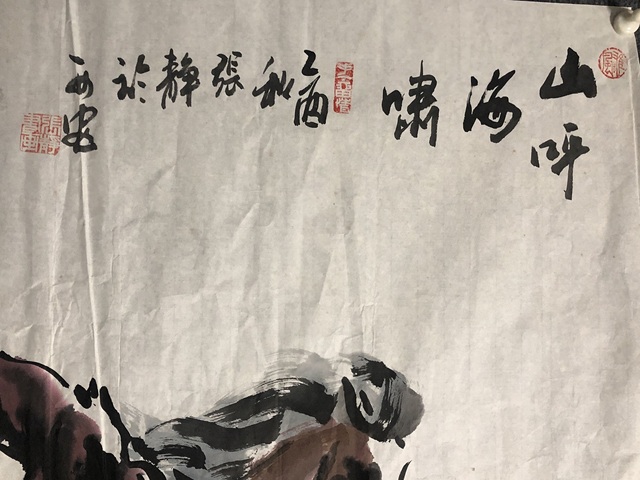 山呼
海
啸
乙酉
秋
張
静
於
西安